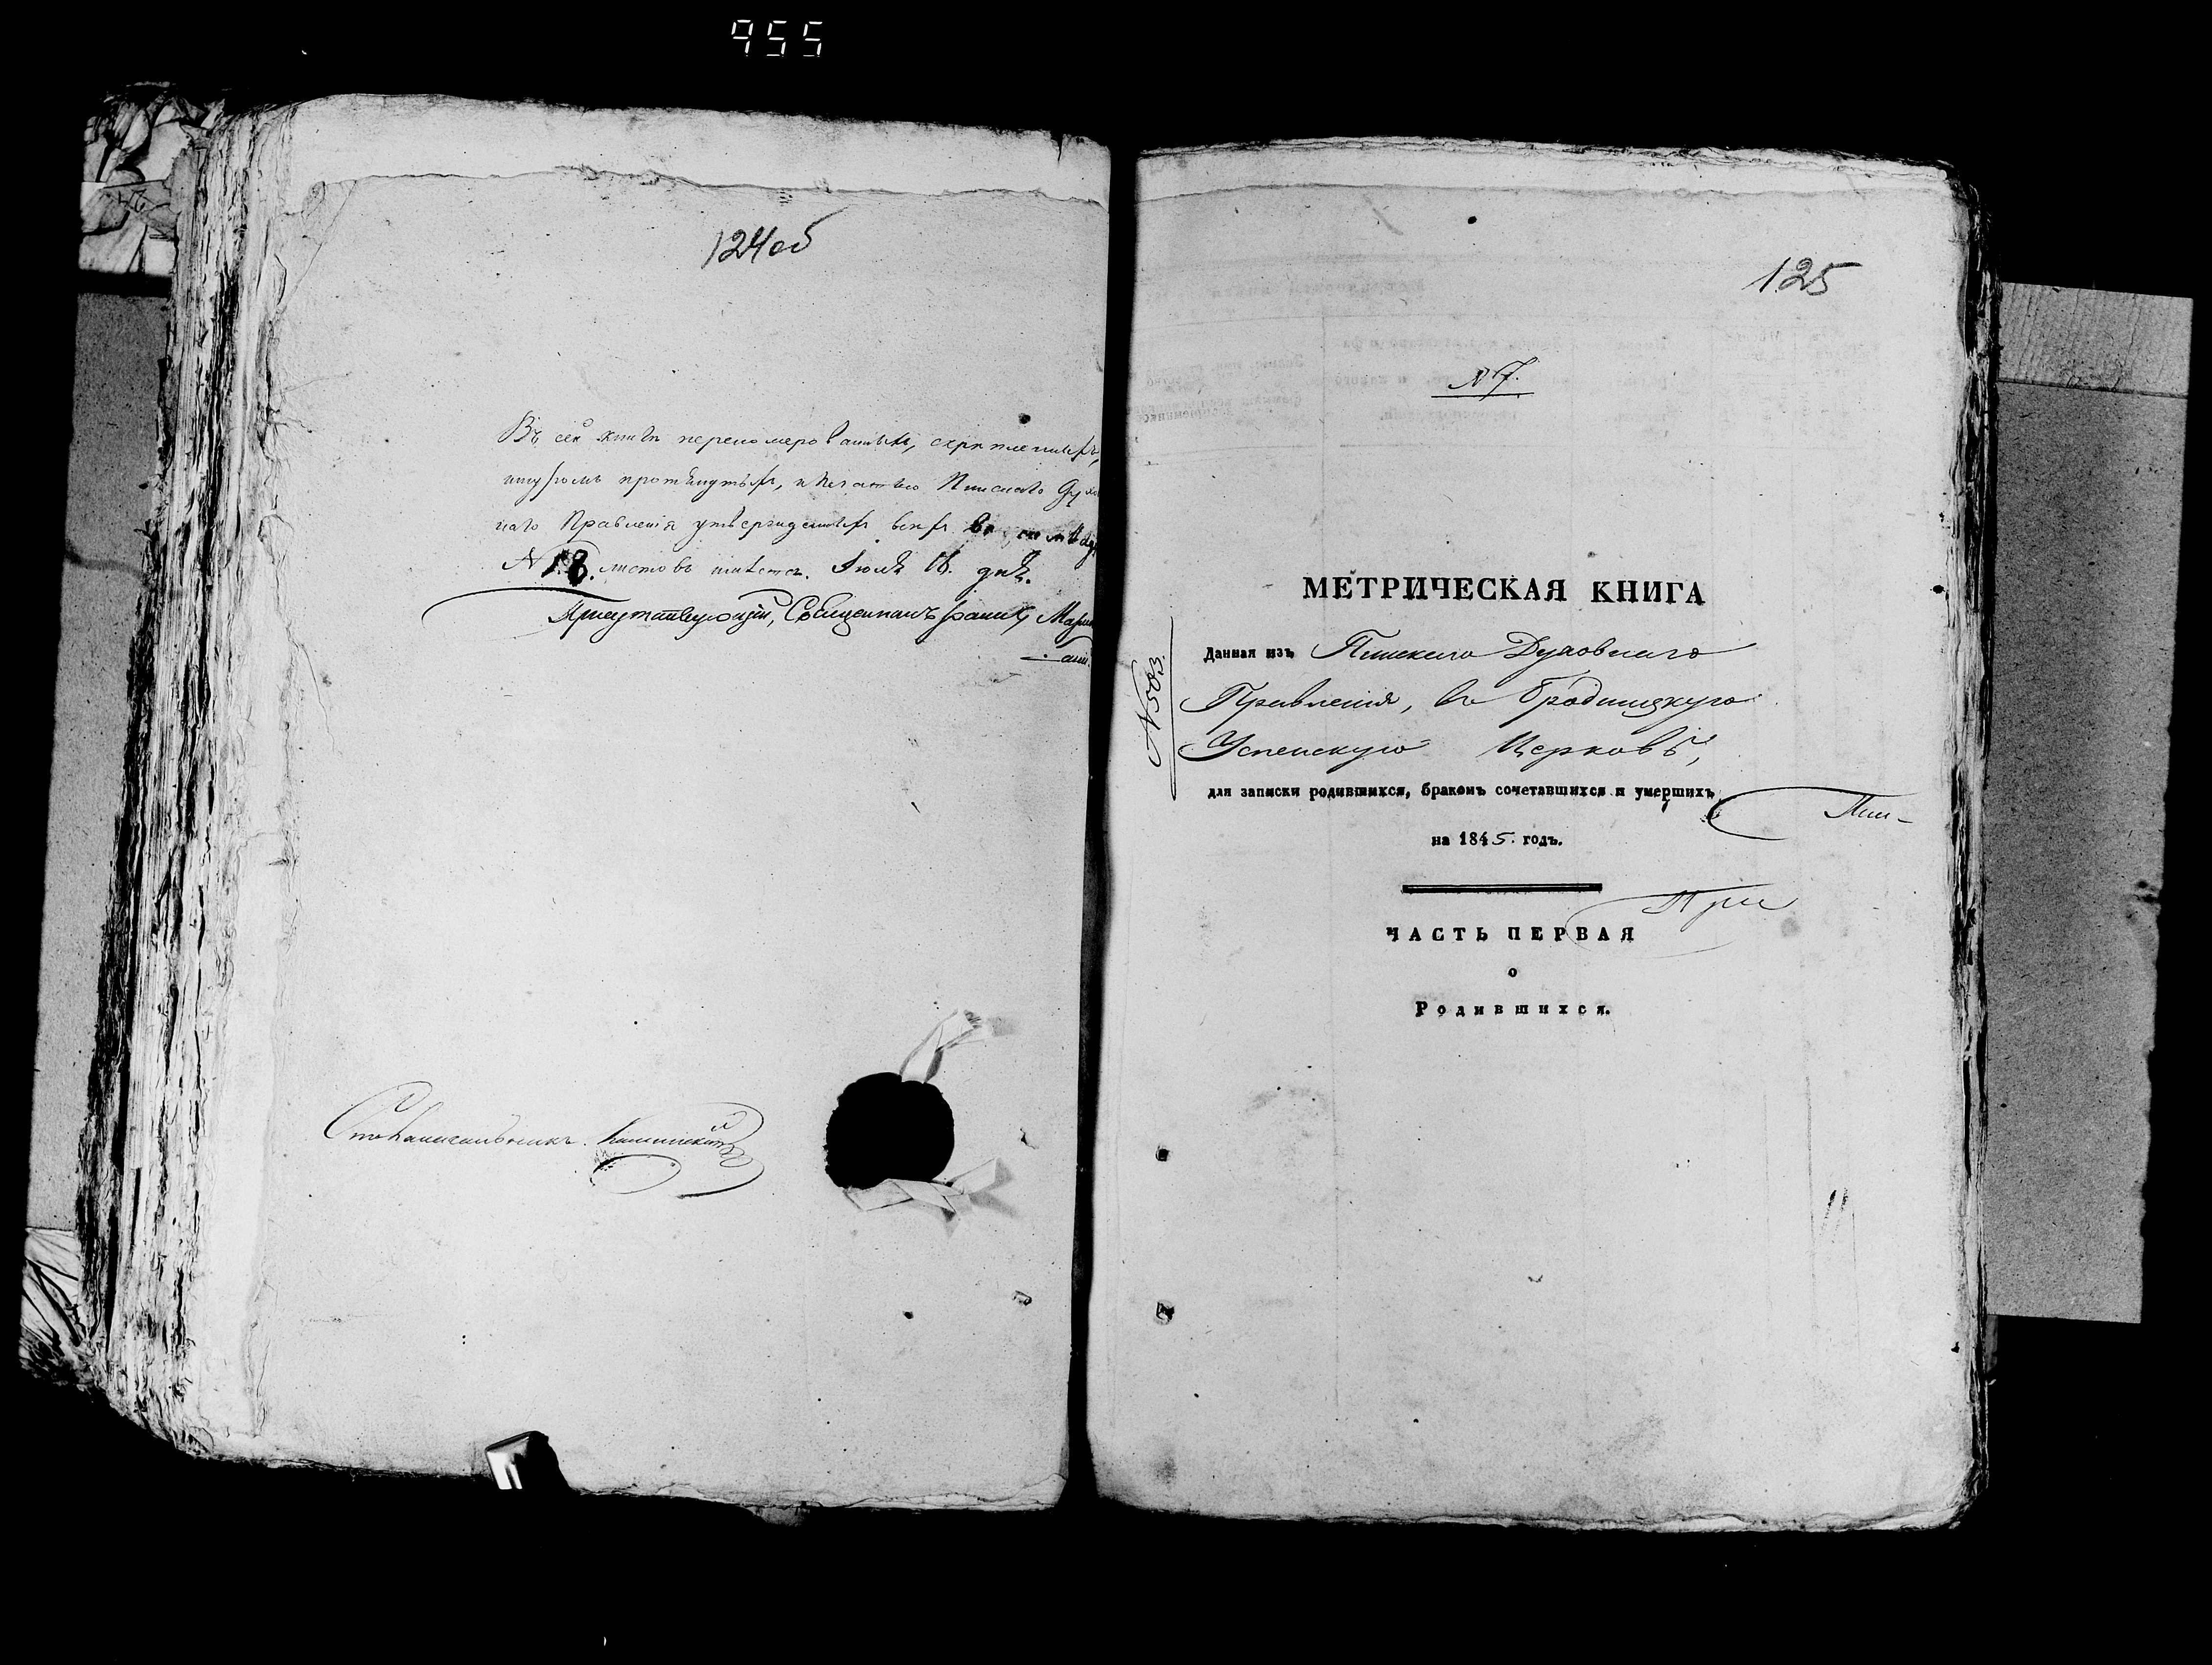 955
124об
Въ сей книгѣ перенумерованныхъ, скрѣпленныхъ,
шнуромъ протянутыхъ, и печатью Пинскаго Духов
наго Правленія утвержденныхъ всѣхъ
N 18. листовъ имѣется. Іюля 18. дня.
Присутствующій, Священникъ
Столоначальникъ
125
N 7.
МЕТРИЧЕСКАЯ КНИГА
Данная изъ Пинскаго Духовнаго
Правленія, въ Бродницкую
Успенскую Церковь,
для записки родившихся, бракомъ сочетавшихся и умершихъ
Пин-
на 1845. годъ.
При
ЧАСТЬ ПЕРВАЯ
о
Родившихся.
N 503.